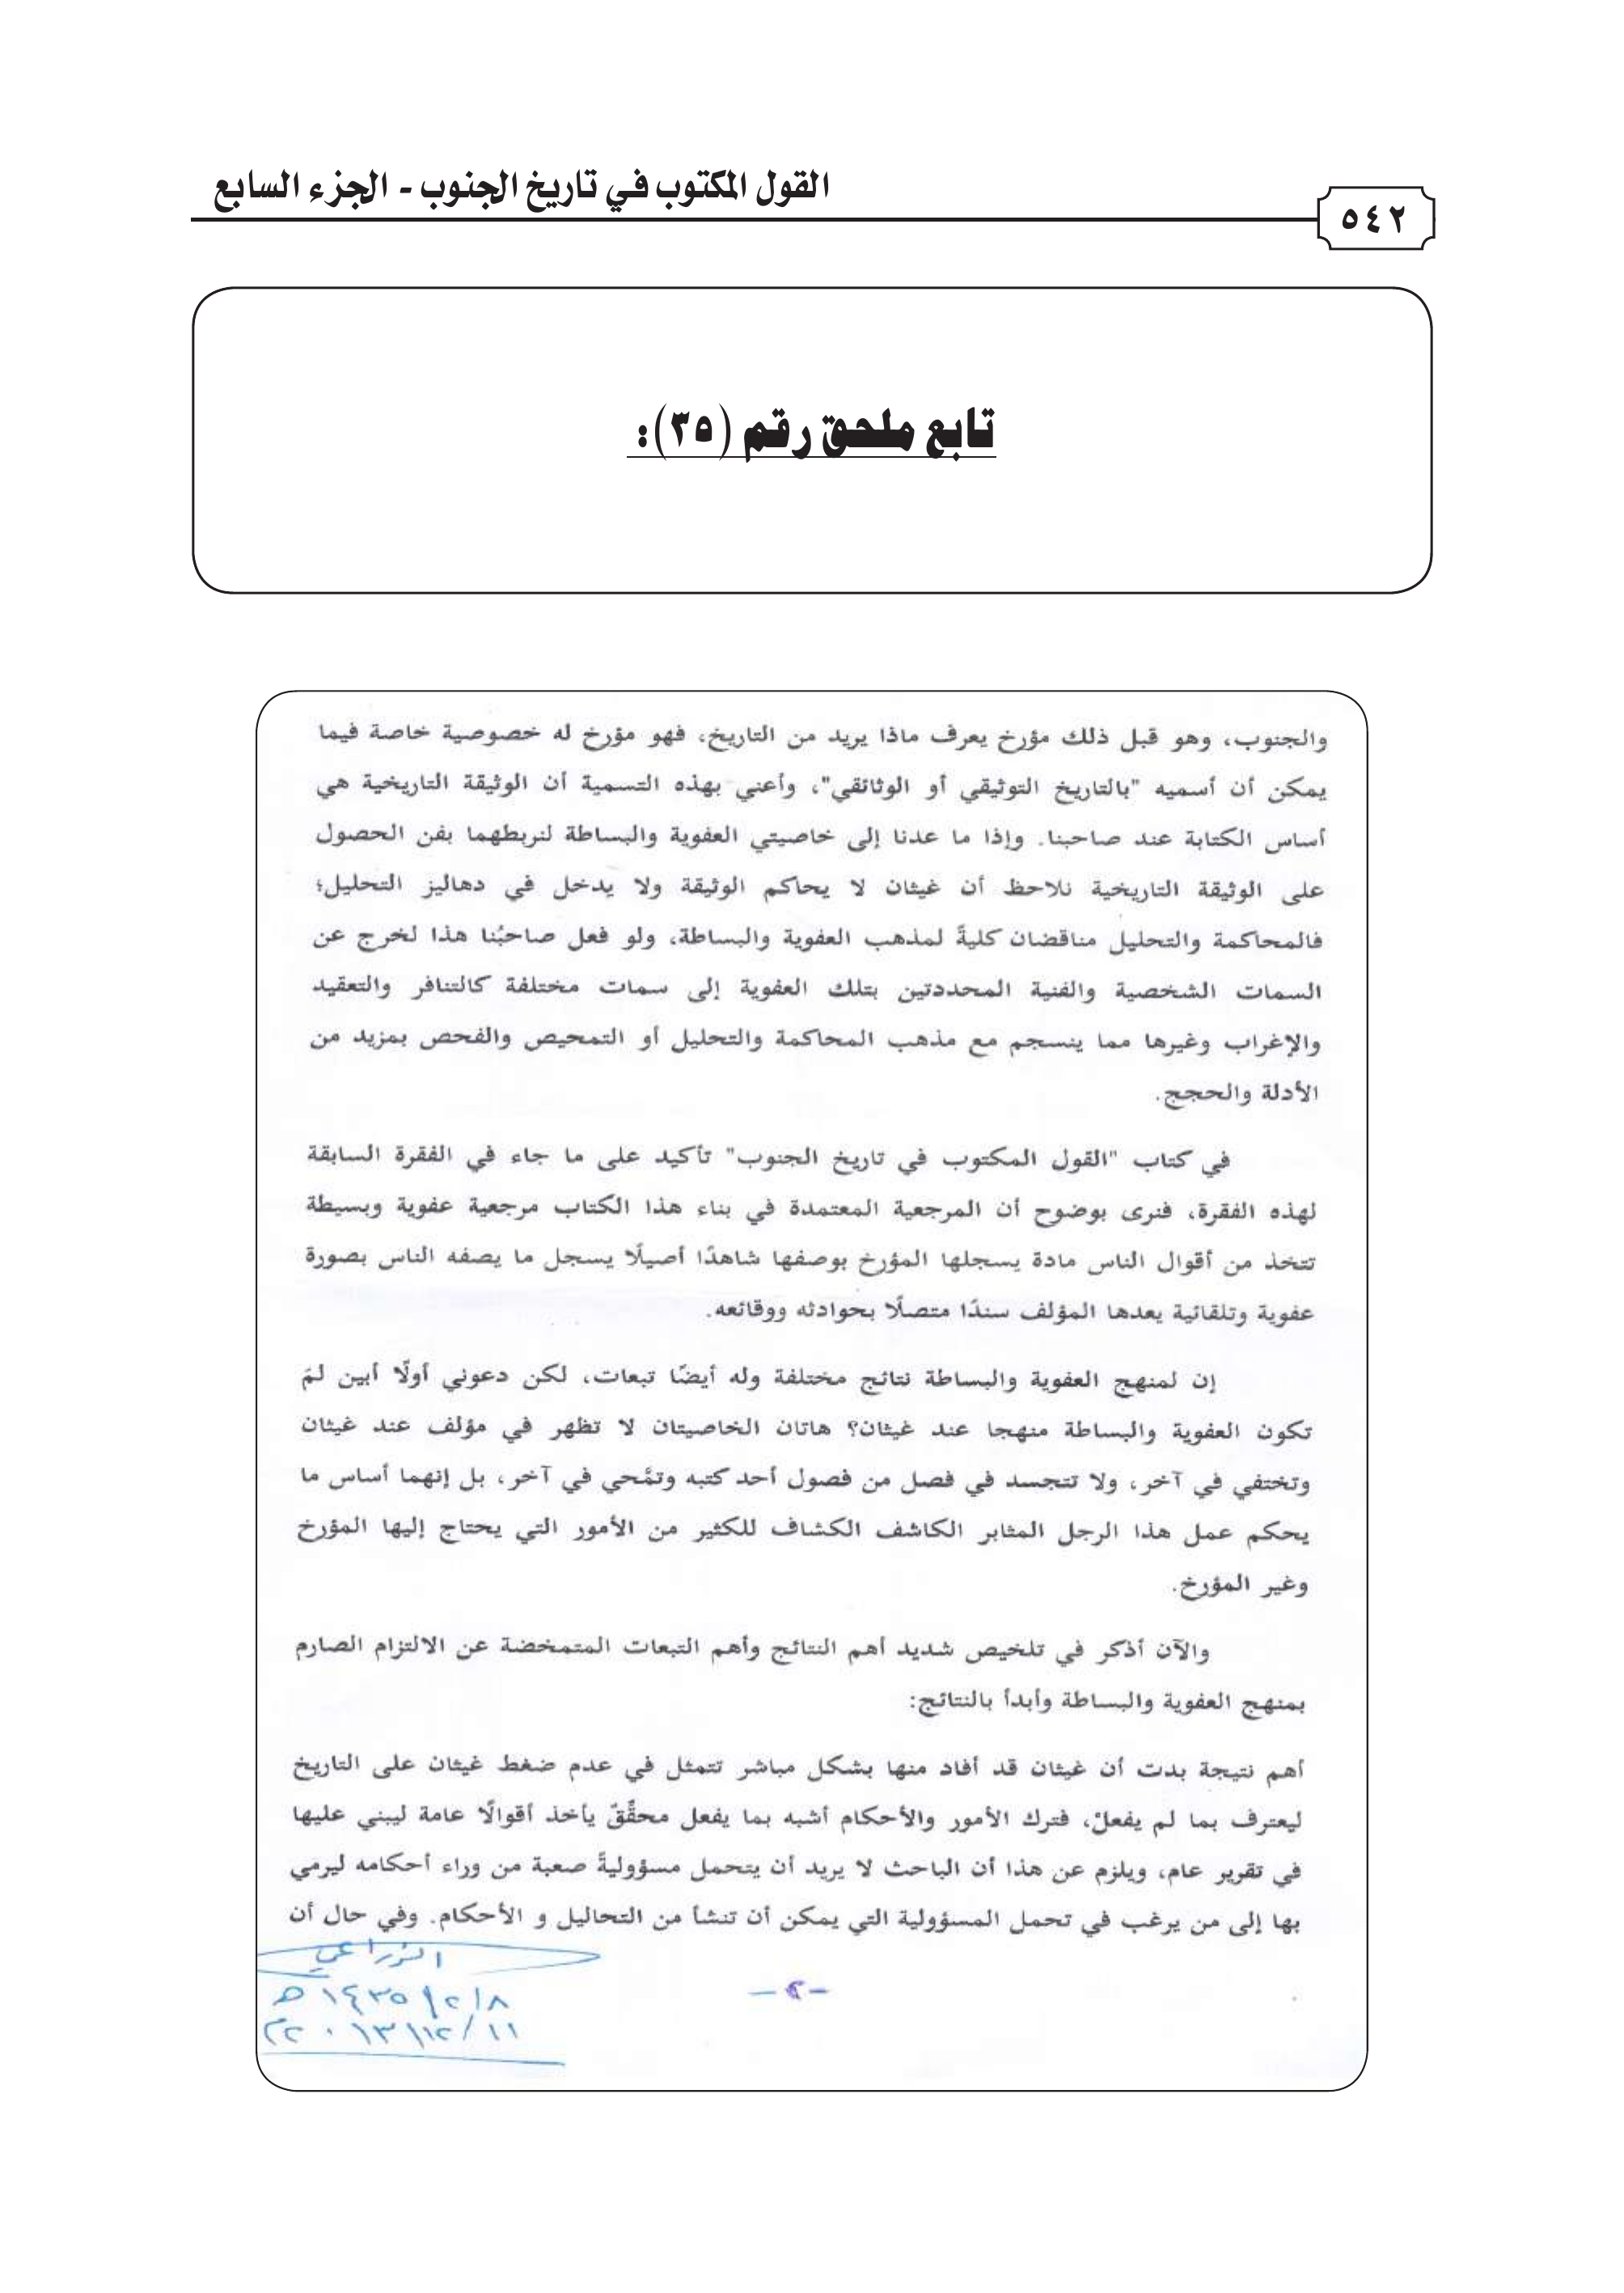 القول المكتوب في تاريخ الجنوب - الجزء السابع
٥٤٢
تابع ملحق رقم (٣٥):
والجنوب، وهو قبل ذلك مؤرخ يعرف ماذا يريد من التاريخ، فهو مؤرخ له خصوصية خاصة فيما
يمكن أن أسميه "بالتاريخ التوثيقي أو الوثائقي"، وأعني بهذه التسمية أن الوثيقة التاريخية هي
أساس الكتابة عند صاحبنا. وإذا ما عدنا إلى خاصيتي العفوية والبساطة لنربطهما بفن الحصول
على الوثيقة التاريخية نلاحظ أن غيثان لا يحاكم الوثيقة ولا يدخل في دهاليز التحليل؛
فالمحاكمة والتحليل مناقضان كليةً لمذهب العفوية والبساطة، ولو فعل صاحبُنا هذا لخرج عن
السمات الشخصية والفنية المحددتين بتلك العفوية إلى سمات مختلفة كالتنافر والتعقيد
والإغراب وغيرها مما ينسجم مع مذهب المحاكمة والتحليل أو التمحيص والفحص بمزيد من
الأدلة والحجج.
في كتاب "القول المكتوب في تاريخ الجنوب" تأكيد على ما جاء في الفقرة السابقة
لهذه الفقرة، فنرى بوضوح أن المرجعية المعتمدة في بناء هذا الكتاب مرجعية عفوية وبسيطة
تتخذ من أقوال الناس مادة يسجلها المؤرخ بوصفها شاهدًا أصيلًا يسجل ما يصفه الناس بصورة
عفوية وتلقائية يعدها المؤلف سندًا متصلًا بحوادثه ووقائعه.
إن لمنهج العفوية والبساطة نتائج مختلفة وله أيضًا تبعات، لكن دعوني أولًا أبين لمَ
تكون العفوية والبساطة منهجا عند غيثان؟ هاتان الخاصيتان لا تظهر في مؤلف عند غيثان
وتختفي في آخر، ولا تتجسد في فصل من فصول أحد كتبه وتمَّحي في آخر، بل إنهما أساس ما
يحكم عمل هذا الرجل المثابر الكاشف الكشاف للكثير من الأمور التي يحتاج إليها المؤرخ
وغير المؤرخ.
والآن أذكر في تلخيص شديد أهم النتائج وأهم التبعات المتمخضة عن الالتزام الصارم
بمنهج العفوية والبساطة وأبدأ بالنتائج:
أهم نتيجة بدت أن غيثان قد أفاد منها بشكل مباشر تتمثل في عدم ضغط غيثان على التاريخ
ليعترف بما لم يفعلْ، فترك الأمور والأحكام أشبه بما يفعل محقِّقٌ يأخذ أقوالًا عامة ليبني عليها
في تقرير عام، ويلزم عن هذا أن الباحث لا يريد أن يتحمل مسؤوليةً صعبة من وراء أحكامه ليرمي
بها إلى من يرغب في تحمل المسؤولية التي يمكن أن تنشأ من التحاليل و الأحكام. وفي حال أن
-٢-
٨/٢/١٤٣٥هـ
١١/١٢/٢٠١٣م